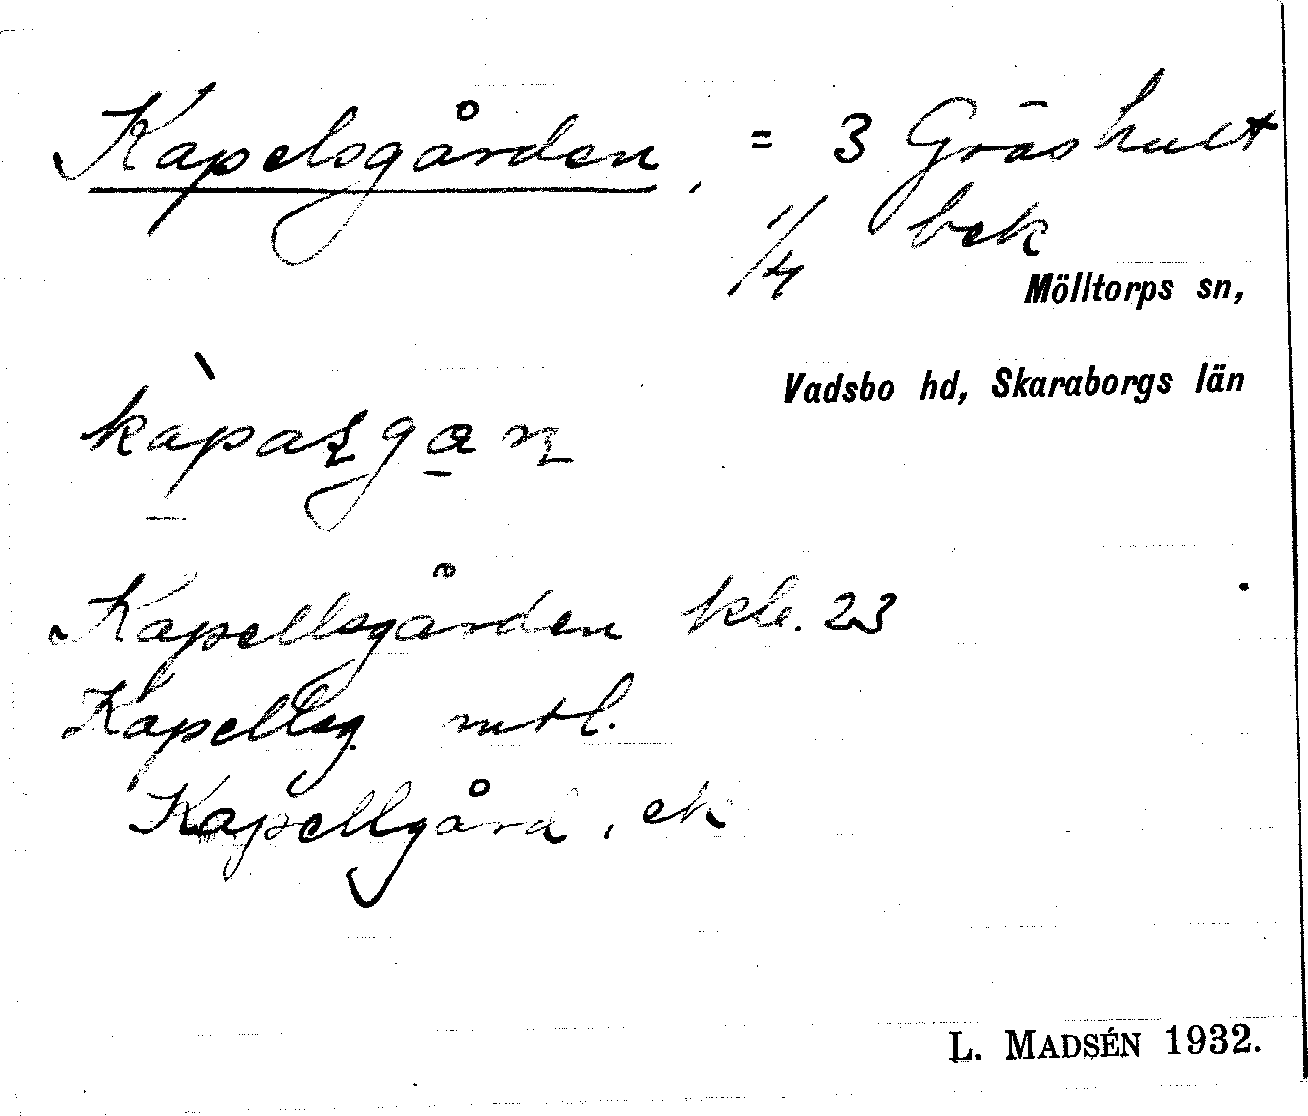 Kapelsgården, = 3 Gräshult
1/4 bek
Mölltorps sn,
Vadsbo hd, Skaraborgs län
kàpaʂgan
Kapellsgården kle. 23
Kapellsg mtl.
Kapellgård, ek
L. MADSÉN 1932.